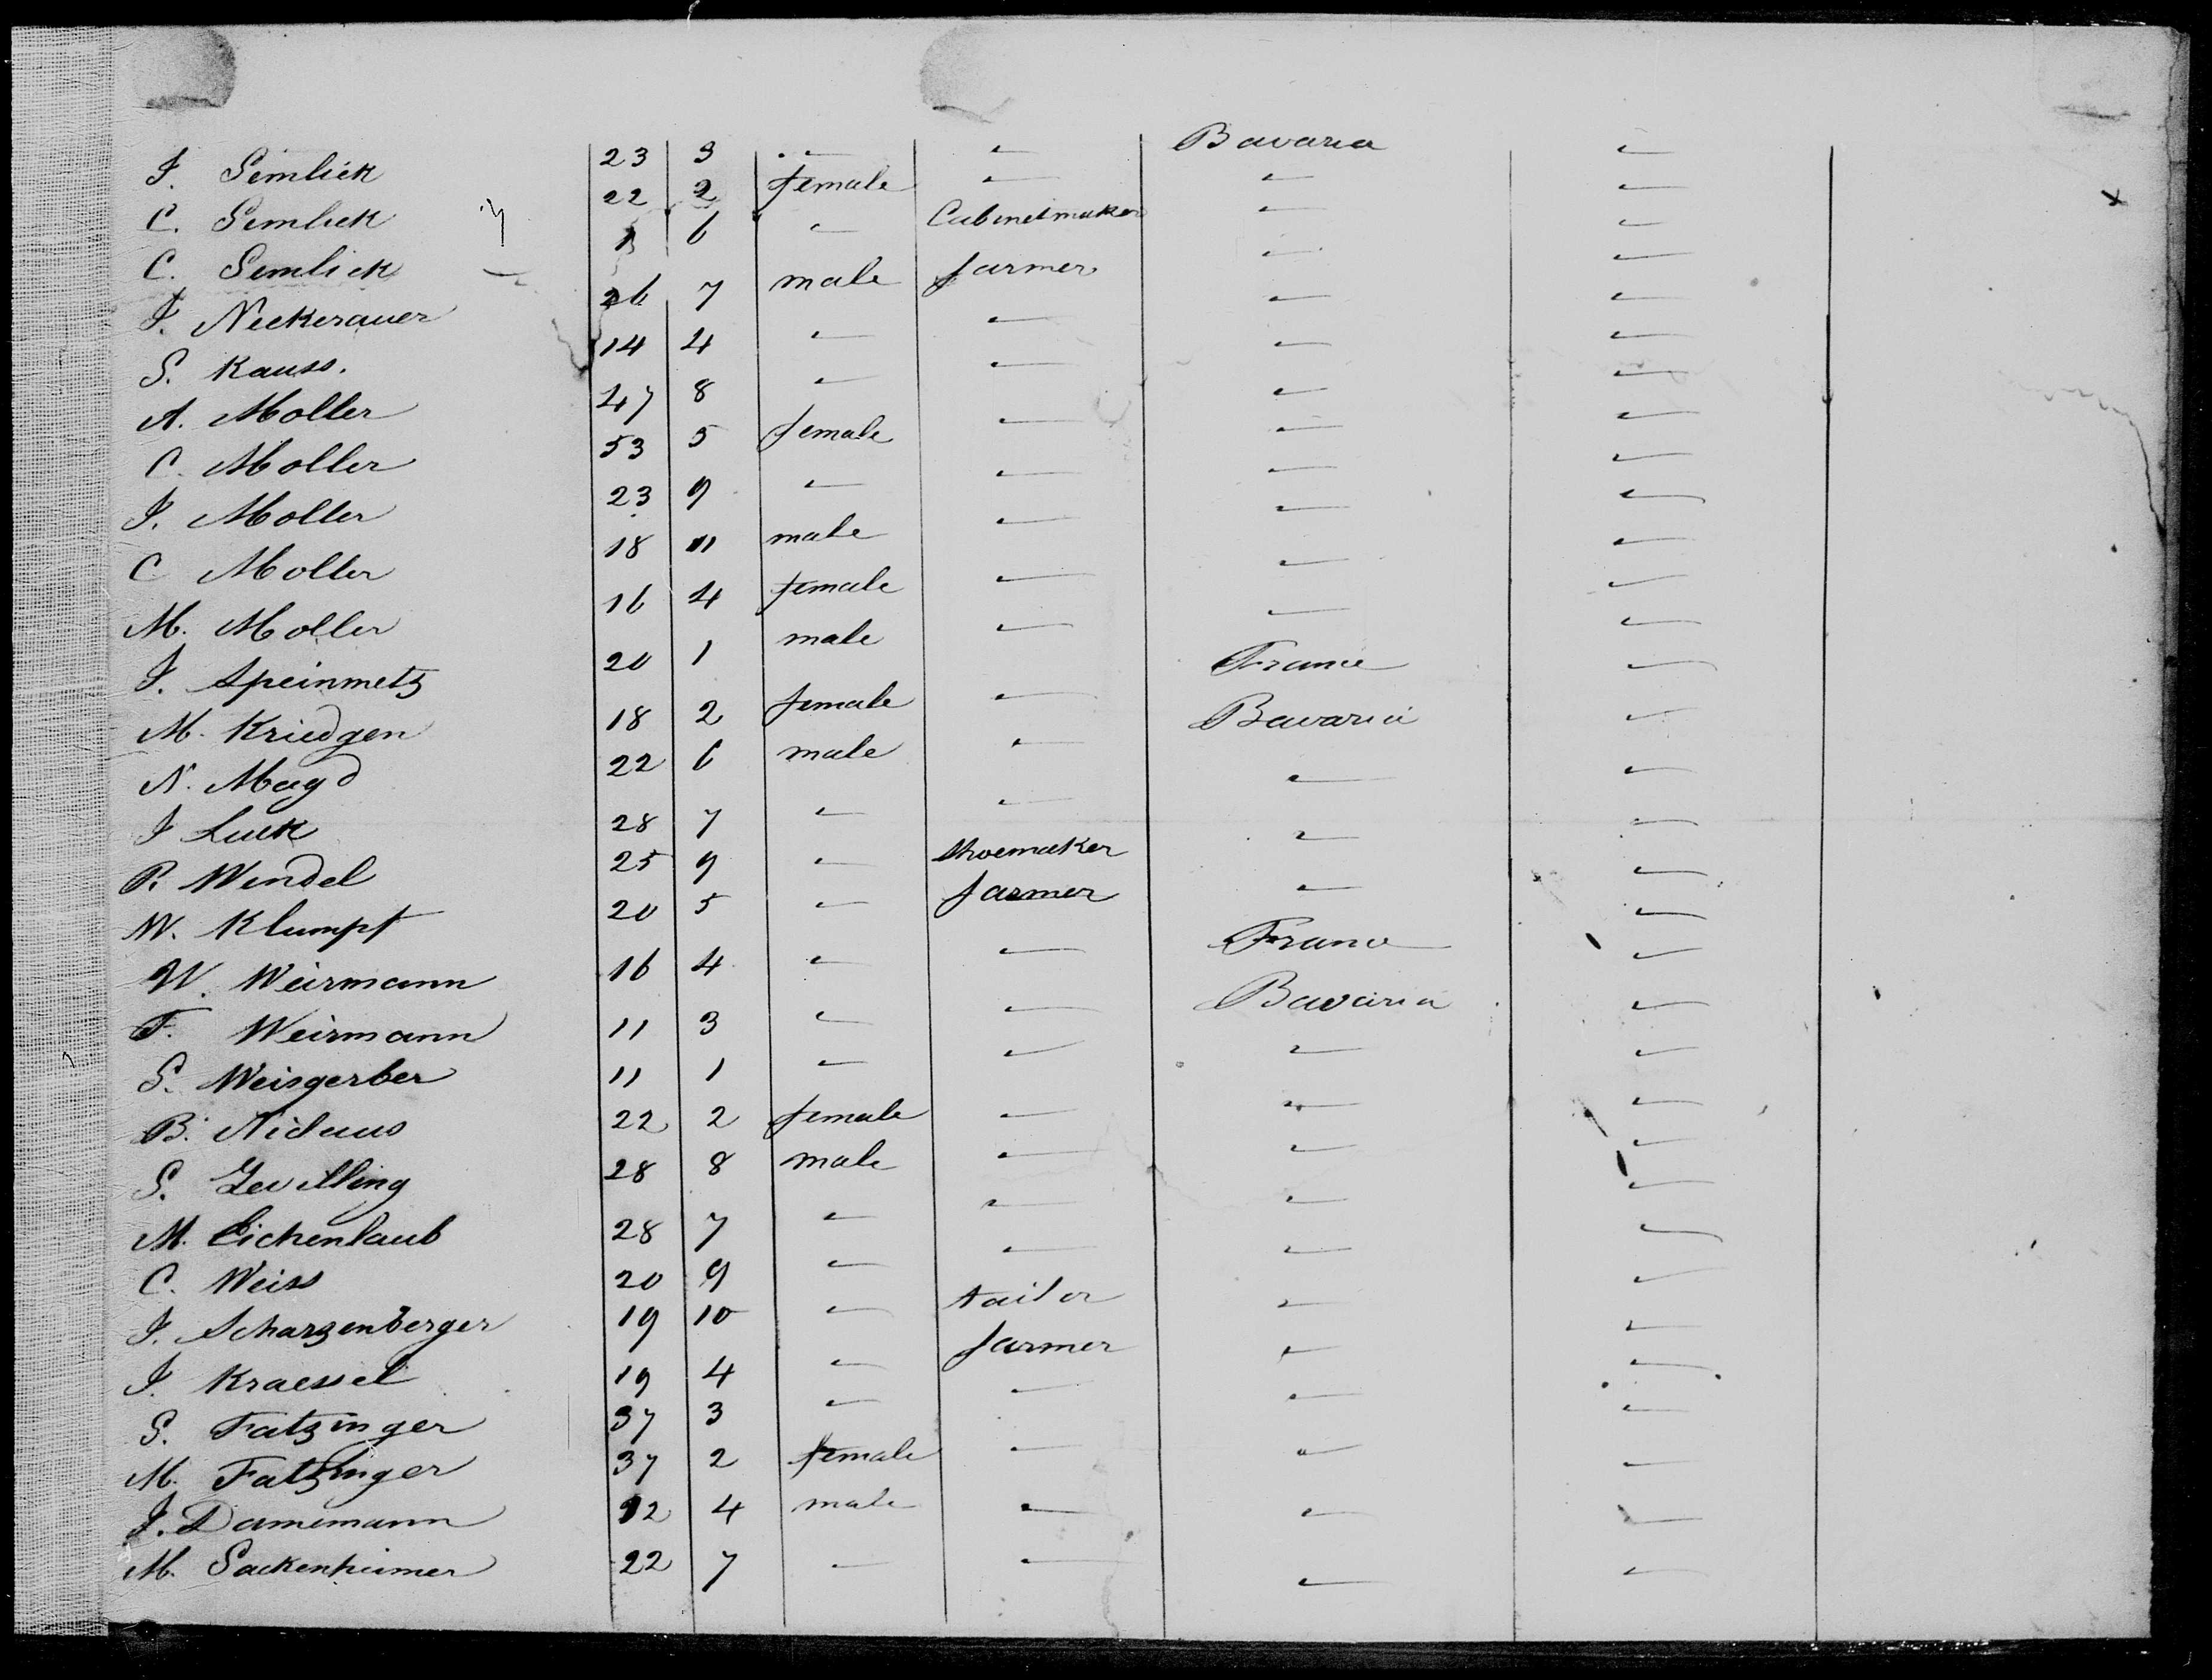 I. Semlick 23 3 " " Bavaria "
C. Semlick 22 2 female " " "
C. Semlick 1 6 " Cabinetmaker " "
I. Neckerauer 26 7 male farmer " "
S. Kauss. 14 4 " " " "
A. Moller 47 8 " " " "
C. Moller 53 5 female " " "
I. Moller 23 9 " " " "
C Moller 18 11 male " " "
M. Moller 16 4 female " " "
I. Speinmetz 20 1 male " " "
M. Kriedgen 18 2 female " France "
N. Magd 22 6 male " Bavaria "
I Luck 28 7 " " " "
P. Wendel 25 9 " Shoemaker " "
W. Klumpf 20 5 " farmer " "
W. Weirmann 16 4 " " France "
F. Weirmann 11 3 " " Bavaria "
S. Weisgerber 11 1 " " " "
B. Nidaus 22 2 female " " "
S. 28 8 male " " "
M. Eichenlaub 28 7 " " " "
C. Weiss 20 9 " " " "
I. Scharzenberger 19 10 " tailor " "
I. Kraessel 19 4 " farmer " "
S. Fatzinger 37 3 " " " "
M. Fatzinger 37 2 female " " "
I. Damemann 12 4 male " " "
M. Sackenheimer 22 7 " " " "